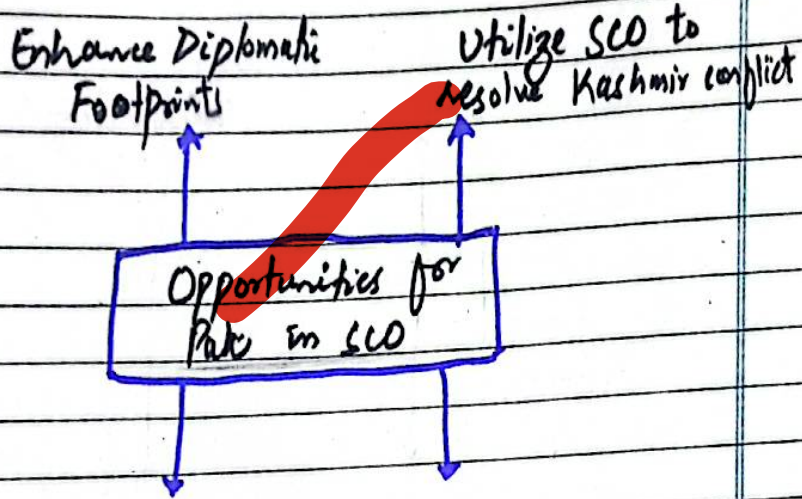 Enhance Diplomatic
Footprints
Utilize SCO to
resolve Kashmir conflict
Opportunities for
Pak in SCO